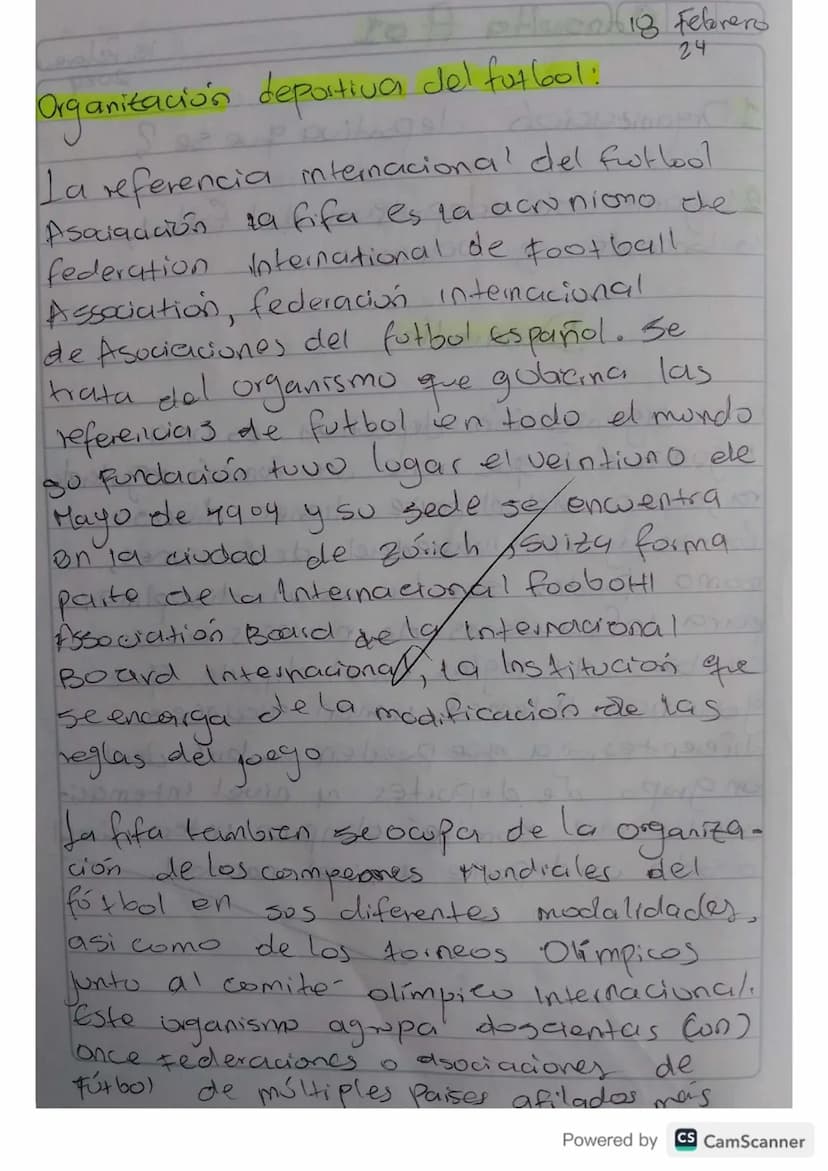 18 Febrero
24
Organitación deportiva del futbol:
La referencia internacional del futbool
Asociación la fifa es la acroniomo de
federation International de Football
Association, federación internacional
de Asociaciones del futbol español. Se
trata del organismo que gobierna las
referencias de futbol en todo el mundo
su Fundación tuvo logar el veintiuno de
Mayo de 1904 y su sede se encuentra
en la ciudad de Zúrich Suiza forma
parte de la Internacional foobotl
Association Board de la internacional
Board Internacional, la Institución que
se encarga de la modificación de las
reglas del joego
La fifa tambien se ocupa de la organiza-
ción de los campeones Mundiales del
fútbol en sus diferentes modalidades,
asi como de los torneos Olímpicos
junto al comite olímpico Internacional.
Este organismo agrupa doscientas (on)
once federaciones o asociaciones de
Fútbol de múltiples países afilados más
Powered by CS CamScanner